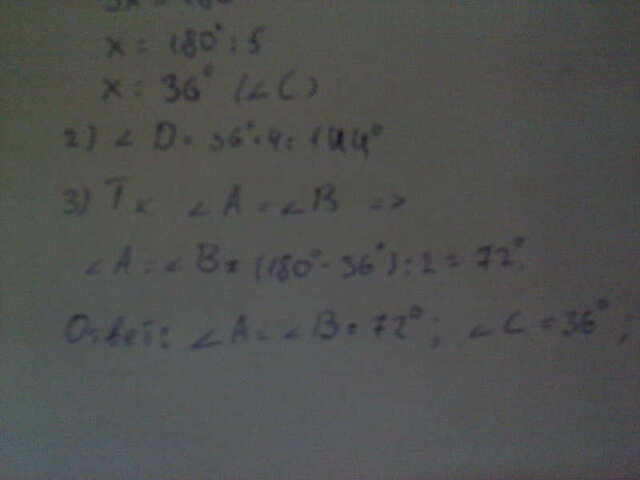 5x = 180°
x = 180° : 5
x = 36° (∠C)
2) ∠D = 36° · 4 = 144°
3) Т.к ∠A = ∠B =>
∠A = ∠B = (180° - 36°) : 2 = 72°.
Ответ: ∠A = ∠B = 72°; ∠C = 36°;